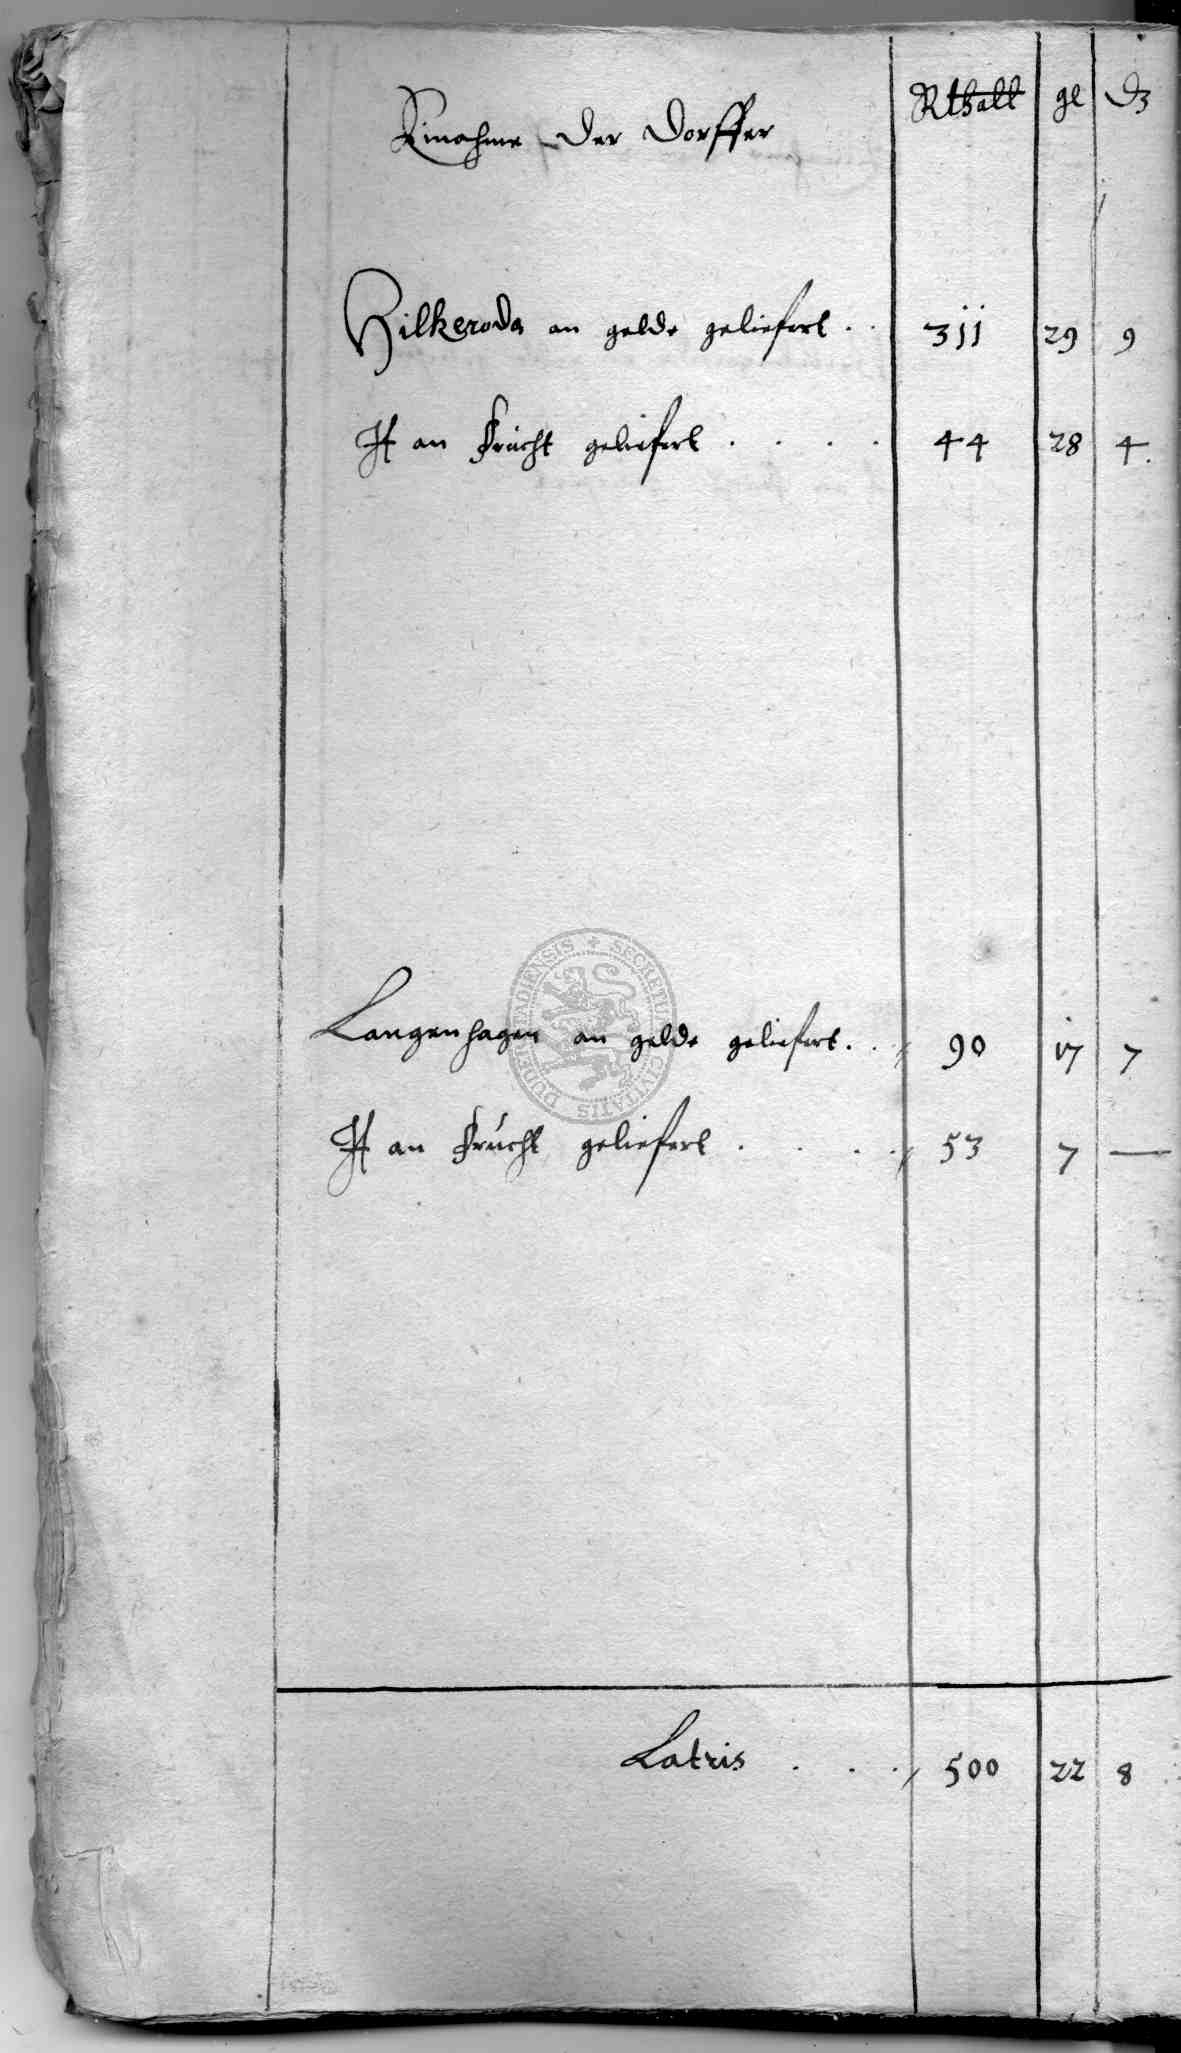 Einahme der Dorffer Rthall gl d
Hilkeroda an gelde geliefert . . 311 29 9
It an Frücht geliefert . . . . 44 28 4.
Langenhagen an gelde geliefert . . 90 17 7
It an Frücht geliefert . . . . 53 7 —
Latris . . . 500 22 8
SECRETI CIVITATIS